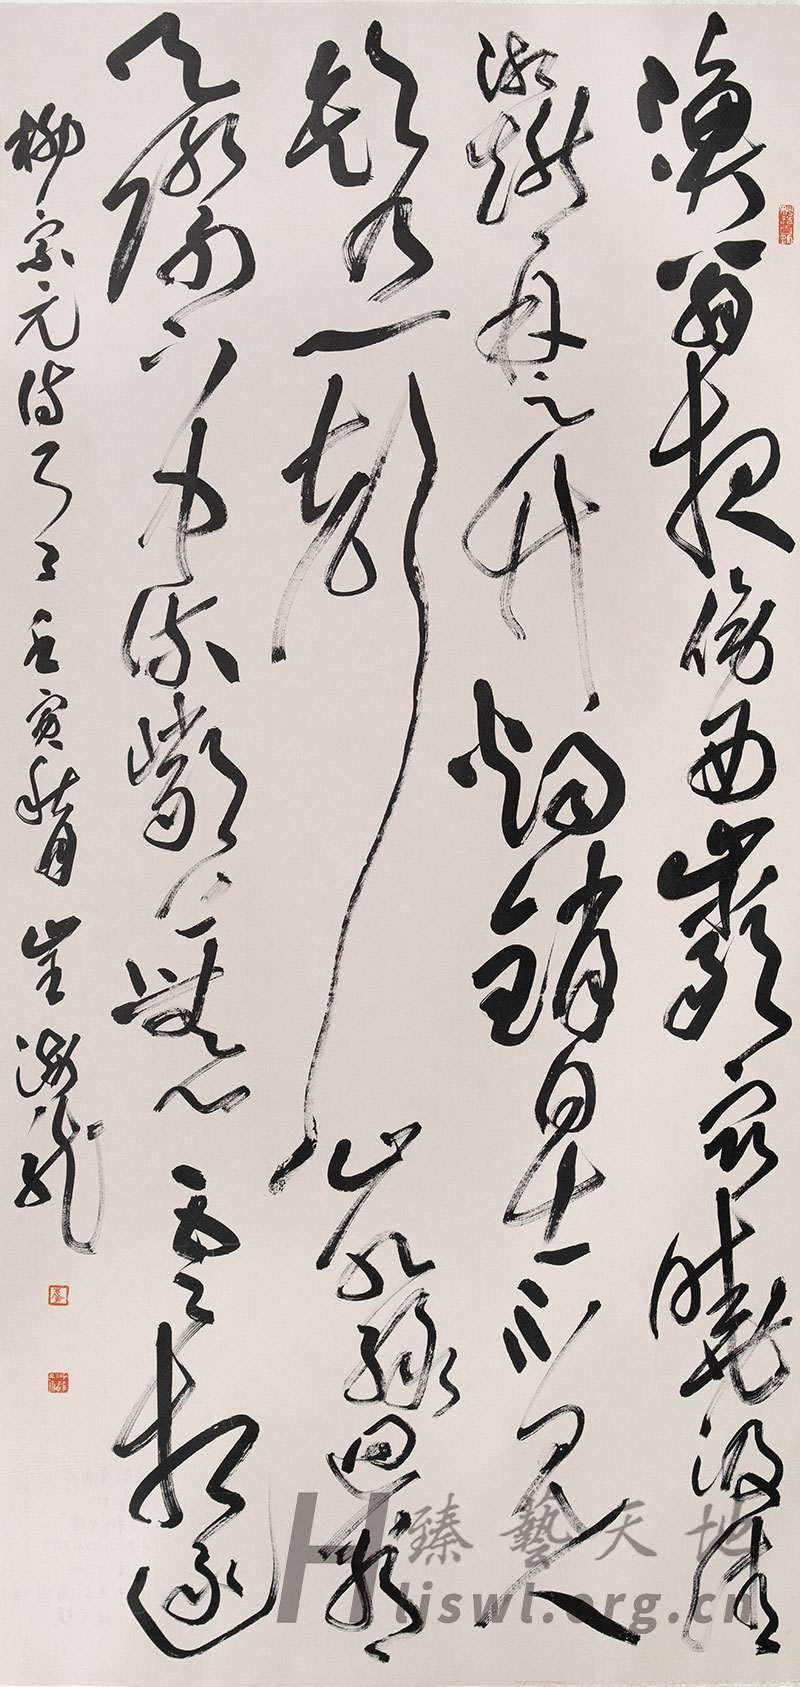 漁翁夜傍西巖宿曉汲清
湘燃楚竹烟銷日出不見人
欸乃一聲山水綠迴看
天際下中流巖上無心雲相逐
柳宗元詩 壬寅秋月 崔龍
臻藝天地
Hljswl.org.cn